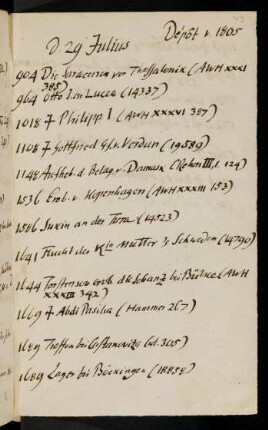 Dépôt v. 1805
D 29 Julius
904 Die Saracenen vor Thessalonix (AWH XXXI
385)
964 Otto I in Lucca (14327)
1018 † Philipp I (AWH XXXVI 387)
1108 † Gottfried Gf. v. Verdun (19589)
1148 Aufheb. d. Belag. v. Damask (Rehm III, 2. 124)
1536 Erob. v. Kopenhagen (AWH XXXIII 153)
1586 an der (14523)
1641 Flucht der Kin Mutter v. Schweden (14790)
1644 Torstenson erob. die Schanz bei (AWH
XXXIII 342)
1669 † Abdi Pascha (Hammer 267)
1689 Treffen bei Costanowitz (id. 305)
1689 Lager bei (18858)